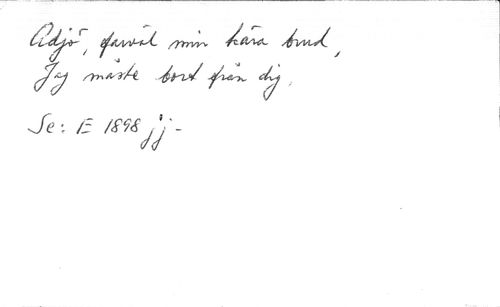 Adjö, farväl min kära brud,
Jag måste bort från dig.
Se: E 1898 jj -